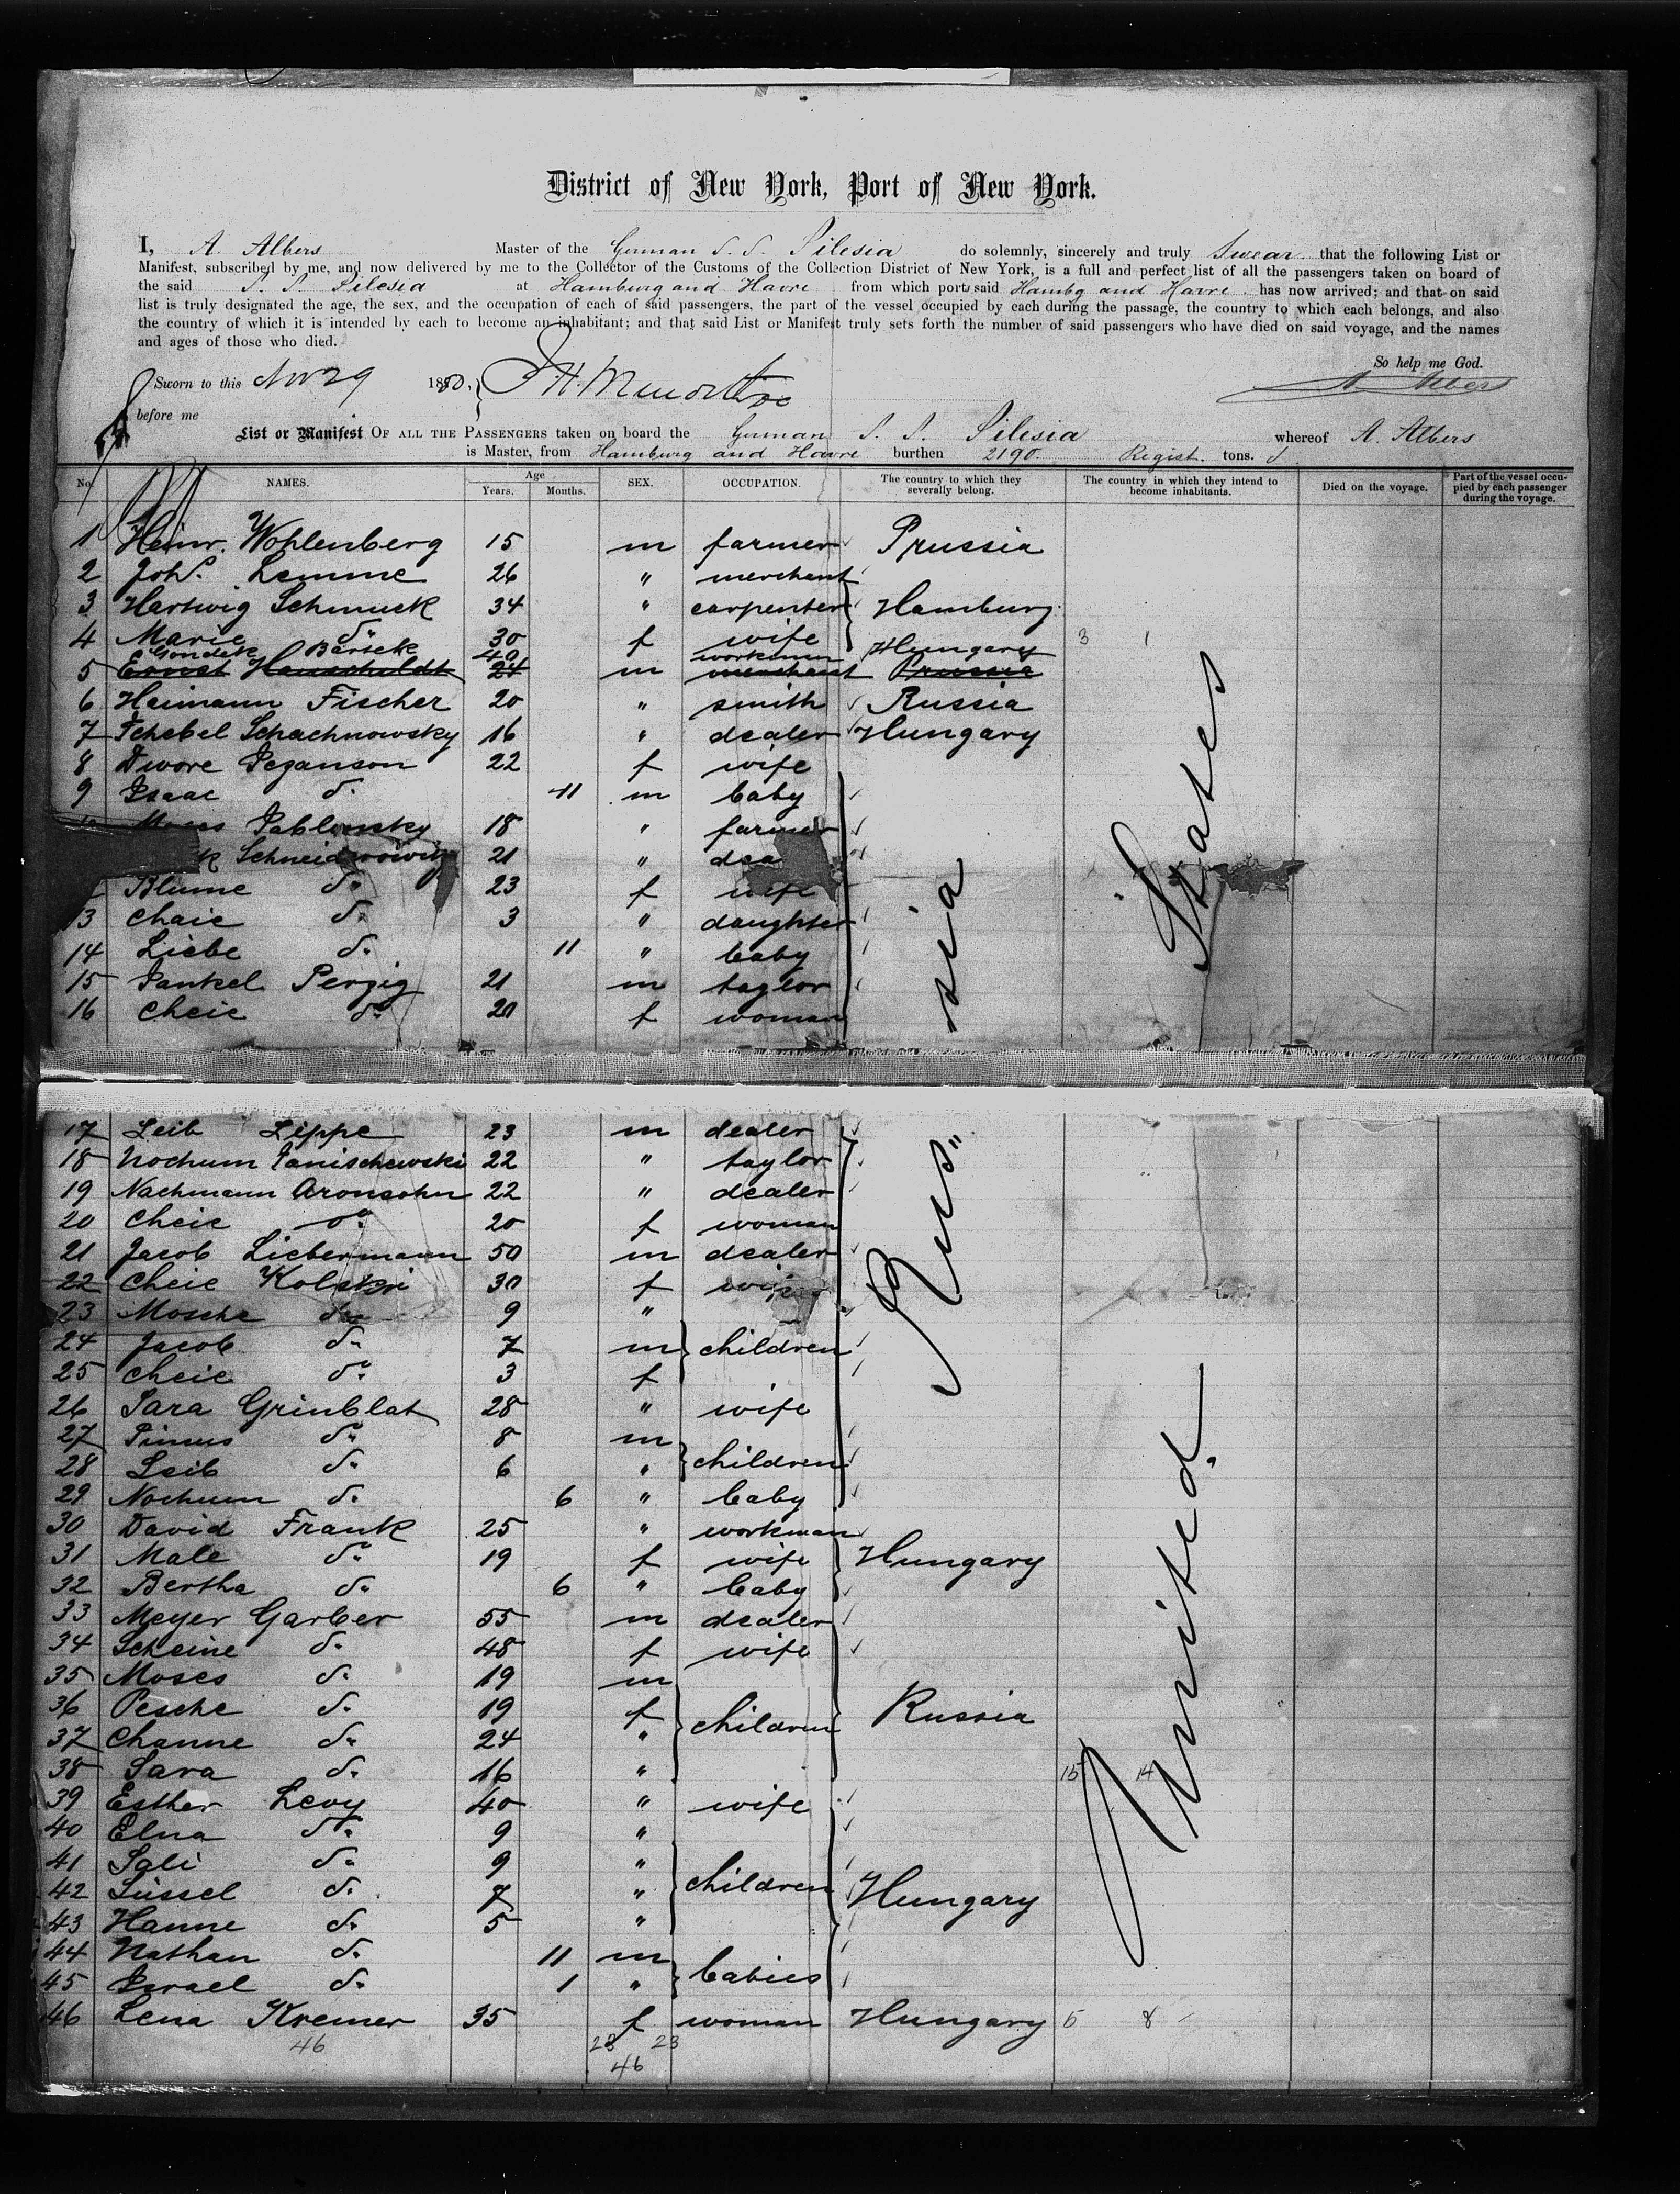 District of New York, Port of New York.
I, A. Albers Master of the German S. S. Silesia do solemnly, sincerely and truly Swear that the following List or
Manifest, subscribed by me, and now delivered by me to the Collector of the Customs of the Collection District of New York, is a full and perfect list of all the passengers taken on board of
the said S. S. Silesia at Hamburg and Havre from which ports said Hambg and Havre has now arrived; and that on said
list is truly designated the age, the sex, and the occupation of each of said passengers, the part of the vessel occupied by each during the passage, the country to which each belongs, and also
the country of which it is intended by each to become an inhabitant; and that said List or Manifest truly sets forth the number of said passengers who have died on said voyage, and the names
and ages of those who died.
So help me God.
Sworn to this Nov 29 1880,
A Albers
before me
List or Manifest OF ALL THE PASSENGERS taken on board the German S. S. Silesia whereof A. Albers
is Master, from Hamburg and Havre burthen 2190. Regist. tons.
No. NAMES. Age Years. Months. SEX. OCCUPATION. The country to which they severally belong. The country in which they intend to become inhabitants. Died on the voyage. Part of the vessel occupied by each passenger during the voyage.
1 Heinr. Wohlenberg 15 m farmer Prussia
2 Johs. Lemme 26 " merchant
3 Hartwig Schmuck 34 " carpenter Hamburg
4 Marie do. 30 f wife 3 1
Gondek Bartek 40 workman Hungary
5 Ernst Hauschuldt 24 m merchant Prussia
6 Heimann Fischer 20 " smith Russia
7 Schebel Schachnowsky 16 " dealer Hungary
8 Dwore Peganson 22 f wife
9 Isaac do. 11 m baby
Moses Jablonsky 18 " farmer
21 "
Blume do. 23 f wife
13 Chaie do. 3 " daughter
14 Liebe do. 11 " baby
15 Jankel Perzig 21 m taylor
16 Cheie do. 20 f woman
17 Leib Lippe 23 m dealer
18 Nochum Janischewski 22 " taylor
19 Nachmann Aronsohn 22 " dealer
20 Cheie do. 20 f woman
21 Jacob Liebermann 50 m dealer
22 Cheie Kolskri 30 f wife
23 Mosche do. 9 "
24 Jacob do. 7 m children
25 Cheie do. 3 f
26 Sara Grinblat 28 " wife
27 Pinus do. 8 m
28 Leib do. 6 " children
29 Nochum do. 6 " baby
30 David Frank 25 " workman
31 Male do. 19 f wife Hungary
32 Bertha do. 6 " baby
33 Meyer Garber 55 m dealer
34 Scheine do. 48 f wife
35 Moses do. 19 m
36 Pesche do. 19 f children Russia
37 Channe do. 24 "
38 Sara do. 16 " 15 14
39 Esther Levy 40 " wife
40 Elna do. 9 "
41 Sali do. 9 "
42 Süssel do. 7 " children Hungary
43 Hanne do. 5 "
44 Nathan do. 11 m
45 Israel do. 1 " babies
46 Lena Kremer 35 f woman Hungary 5 8
46 23 23
46
Russia
United States